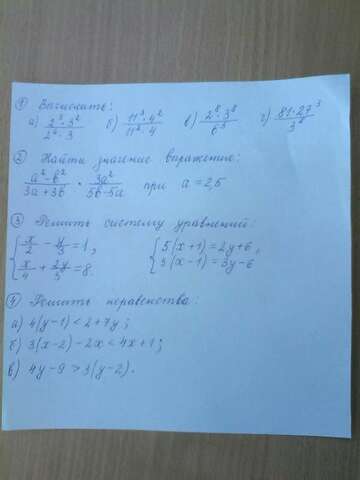 ① Вычислить:
а) 2⁵·3²/2⁴·3 б) 11³·4²/11²·4 в) 2⁸·3⁸/6⁵ г) 81·27³/3⁸
② Найти значение выражения:
a²-b²/3a+3b · 3a²/5b-5a при a=2,5
③ Решить систему уравнений:
x/2 - y/3 = 1, 5(x+1)=2y+6,
x/4 + 2y/3 = 8. 3(x-1)=3y-6
④ Решить неравенства:
а) 4(y-1)<2+7y;
б) 3(x-2)-2x<4x+1;
в) 4y-9>3(y-2).